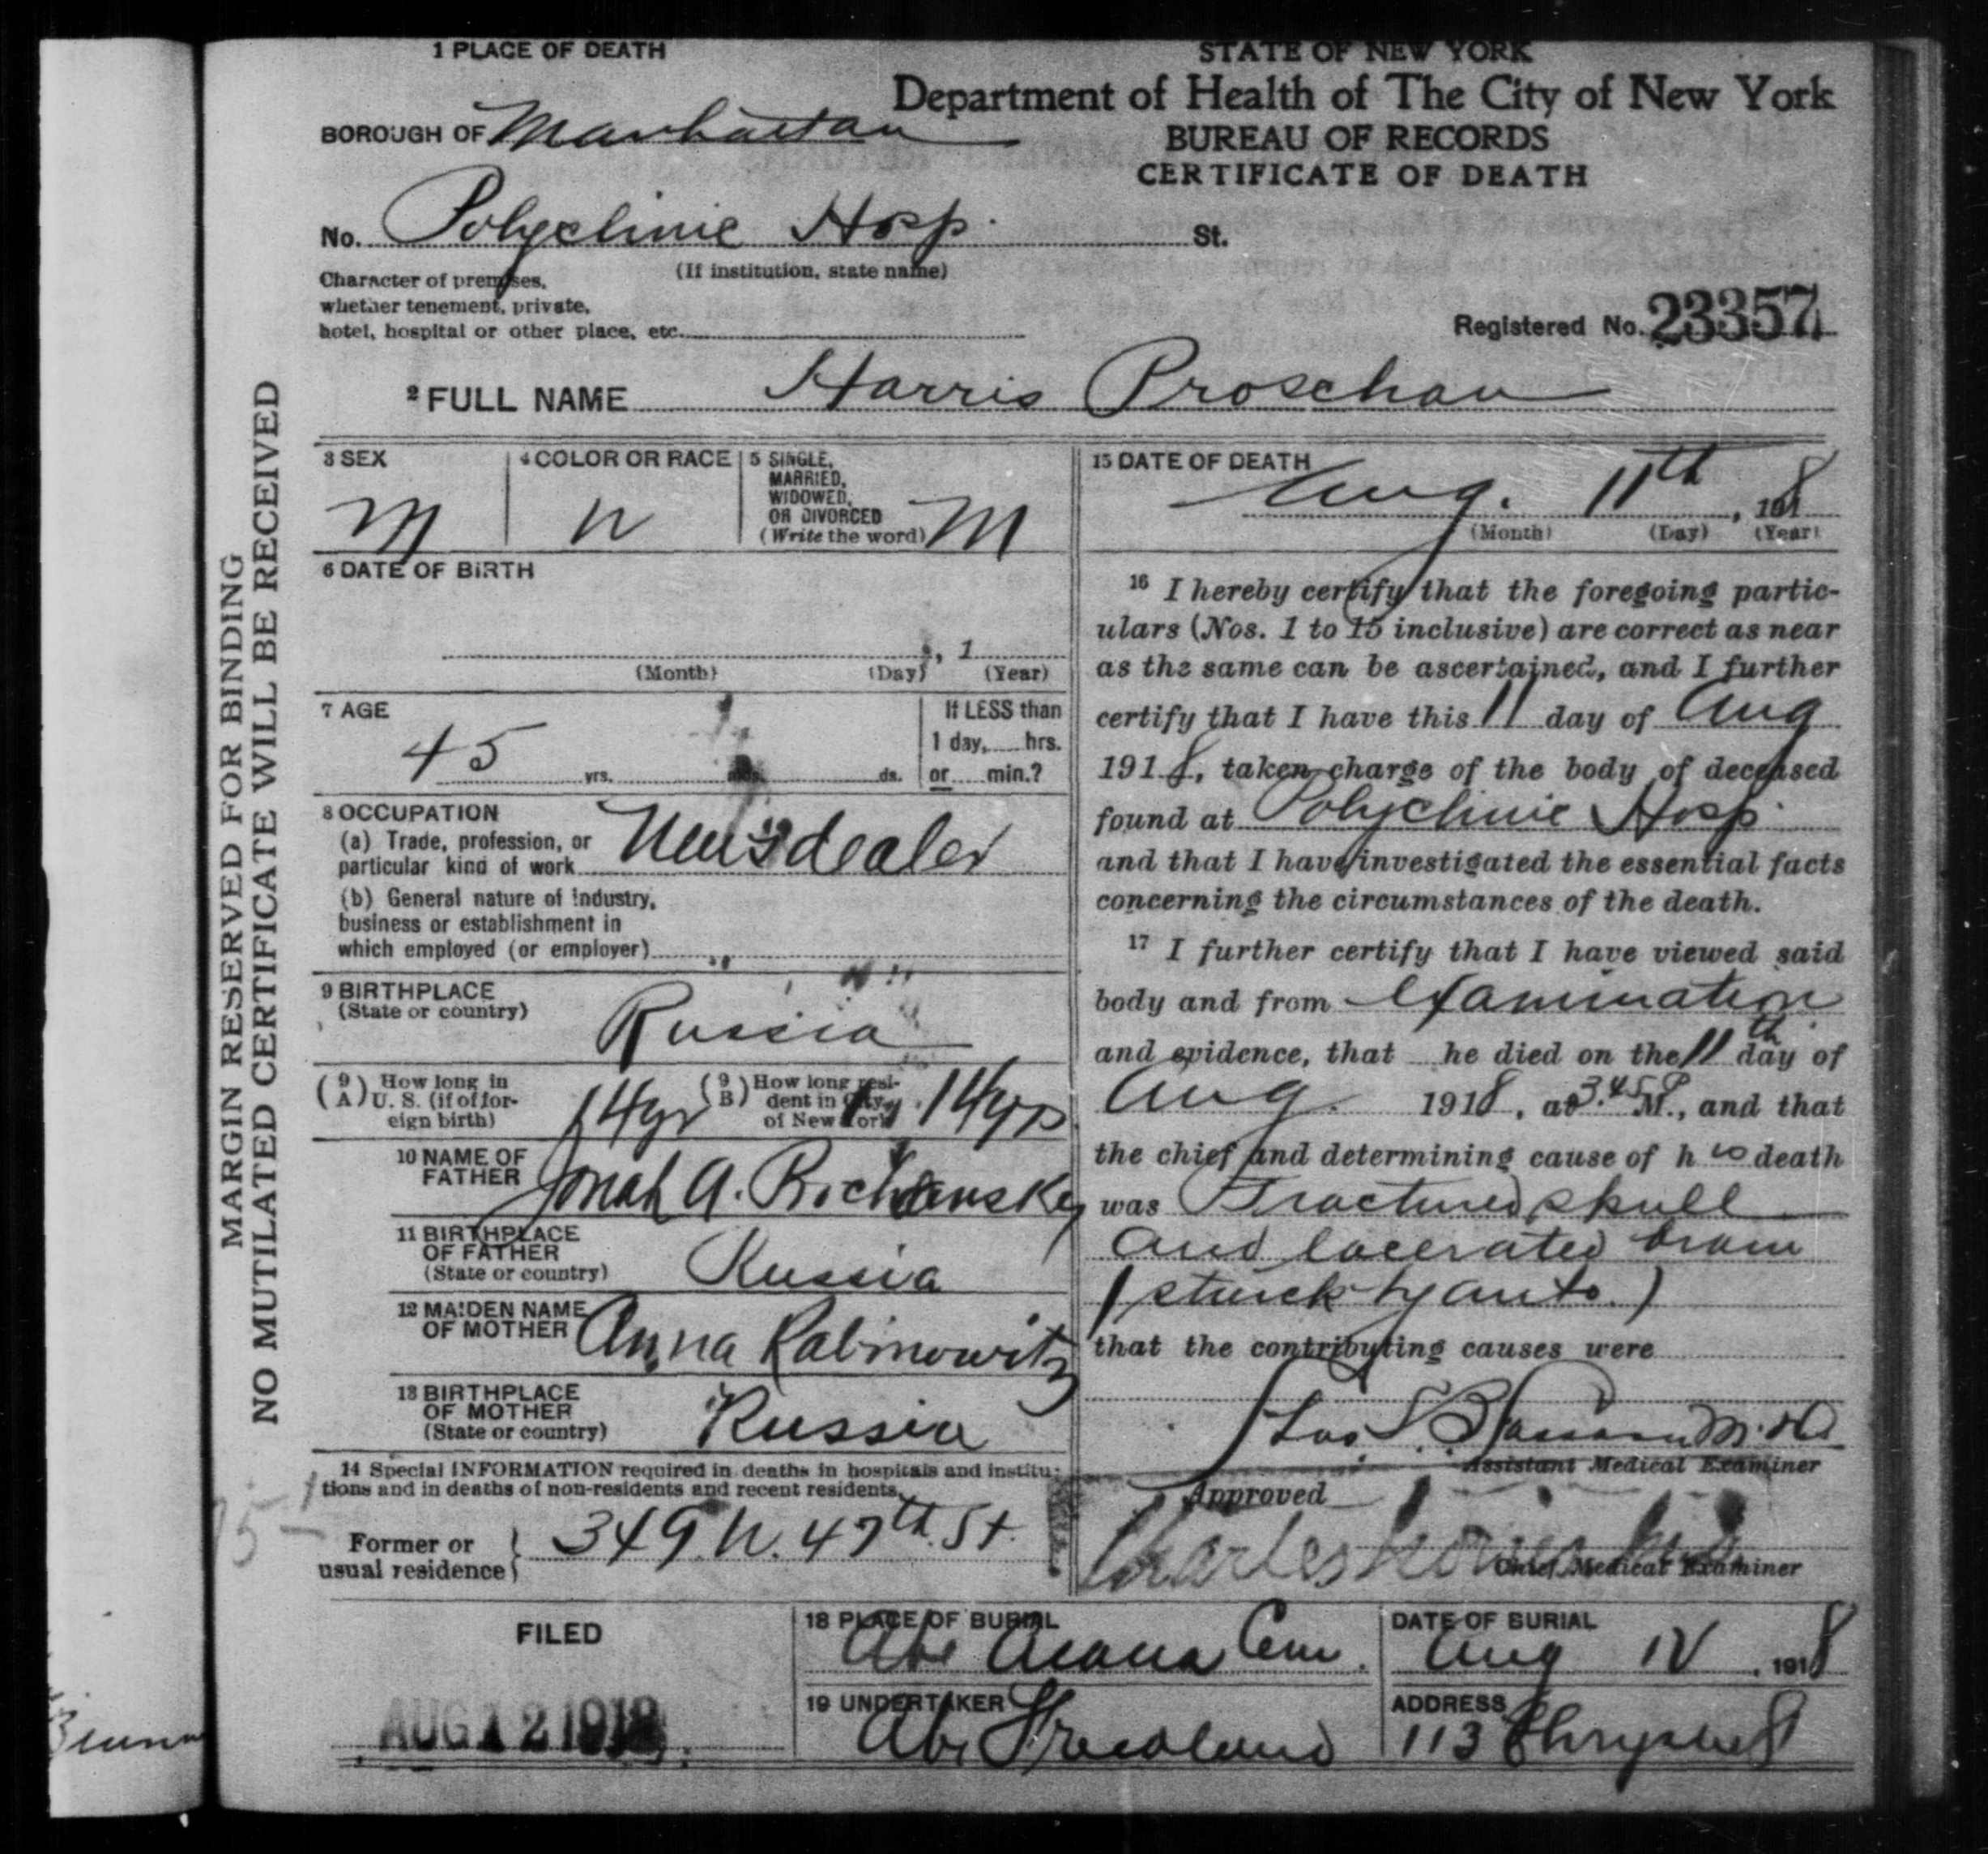 1 PLACE OF DEATH
STATE OF NEW YORK
Department of Health of The City of New York
BUREAU OF RECORDS
CERTIFICATE OF DEATH
BOROUGH OF Manhattan
No. Polyclinic Hosp. St.
(If institution, state name)
Character of premises,
whether tenement, private,
hotel, hospital or other place, etc.
Registered No. 23357
2 FULL NAME Harris Proschan
3 SEX M
4 COLOR OR RACE W
5 SINGLE,
MARRIED,
WIDOWED,
OR DIVORCED
(Write the word) M
6 DATE OF BIRTH
, 1
(Month) (Day) (Year)
7 AGE
45 yrs. mos. ds.
If LESS than
1 day, hrs.
or min.?
8 OCCUPATION
(a) Trade, profession, or
particular kind of work Newsdealer
(b) General nature of industry,
business or establishment in
which employed (or employer)
9 BIRTHPLACE
(State or country) Russia
(9 A) How long in
U. S. (if of for-
eign birth) 14 yr
(9 B) How long resi-
dent in City
of New York 14 yrs
10 NAME OF
FATHER Jonah A.
11 BIRTHPLACE
OF FATHER
(State or country) Russia
12 MAIDEN NAME
OF MOTHER Anna Rabinowitz
13 BIRTHPLACE
OF MOTHER
(State or country) Russia
14 Special INFORMATION required in deaths in hospitals and institu-
tions and in deaths of non-residents and recent residents.
Former or
usual residence 349 W. 47th St.
15 DATE OF DEATH
Aug. 11th, 1918
(Month) (Day) (Year)
16 I hereby certify that the foregoing partic-
ulars (Nos. 1 to 15 inclusive) are correct as near
as the same can be ascertained, and I further
certify that I have this 11 day of Aug
1918, taken charge of the body of deceased
found at Polyclinic Hosp
and that I have investigated the essential facts
concerning the circumstances of the death.
17 I further certify that I have viewed said
body and from examination
and evidence, that he died on the 11th day of
Aug. 1918, at 3.45 P M., and that
the chief and determining cause of his death
was Fractured skull
and lacerated brain
(struck by auto.)
that the contributing causes were
M.D.
Assistant Medical Examiner
Approved
Charles Norris M.D.
Chief Medical Examiner
FILED
AUG 12 1918
18 PLACE OF BURIAL
Cem.
DATE OF BURIAL
Aug 12, 1918
19 UNDERTAKER
Abe
ADDRESS
113 Chrystie St
MARGIN RESERVED FOR BINDING
NO MUTILATED CERTIFICATE WILL BE RECEIVED